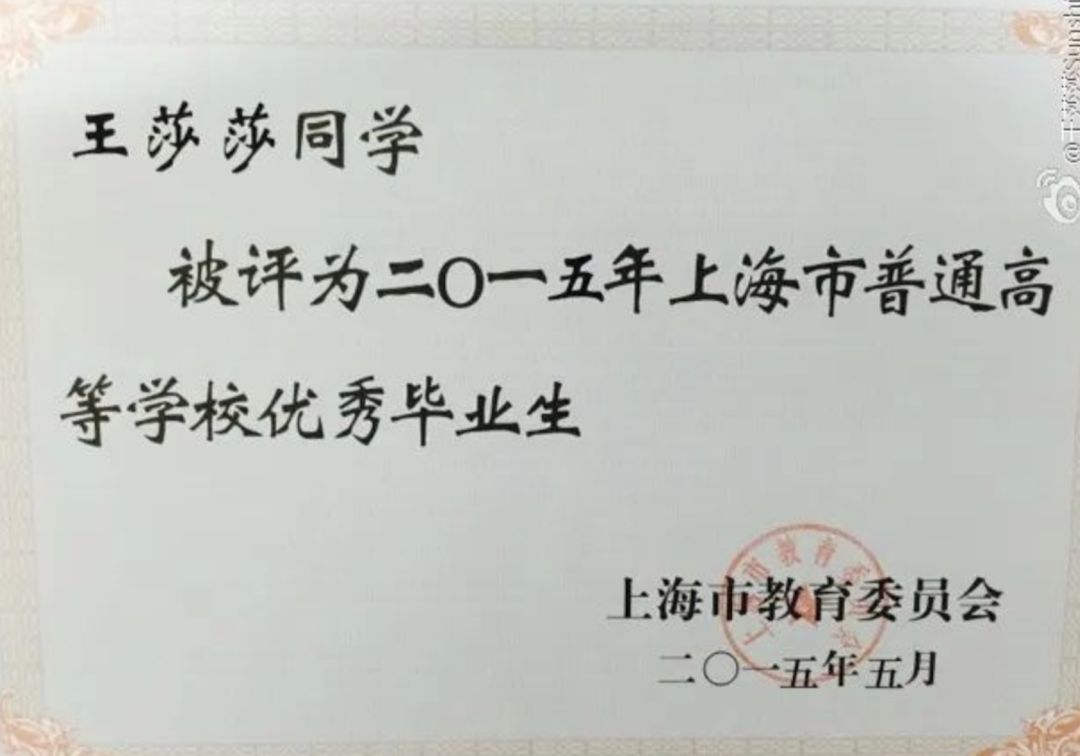 王莎莎同学
被评为二〇一五年上海市普通高
等学校优秀毕业生
上海市教育委员会
二〇一五年五月
上海市教育委员会
@王莎莎Sunshi